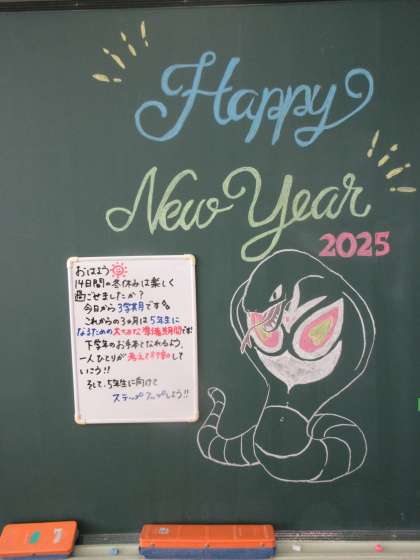 Happy
New Year
2025
おはよう
14日間の冬休みは楽しく
過ごせましたか？
今日から3学期です
これからの3ヶ月は5年生に
なるための大切な準備期間です
下学年のお手本となれるよう、
一人ひとりが考えて行動して
いこう!!
そして、5年生に向けて
ステップアップしよう!!